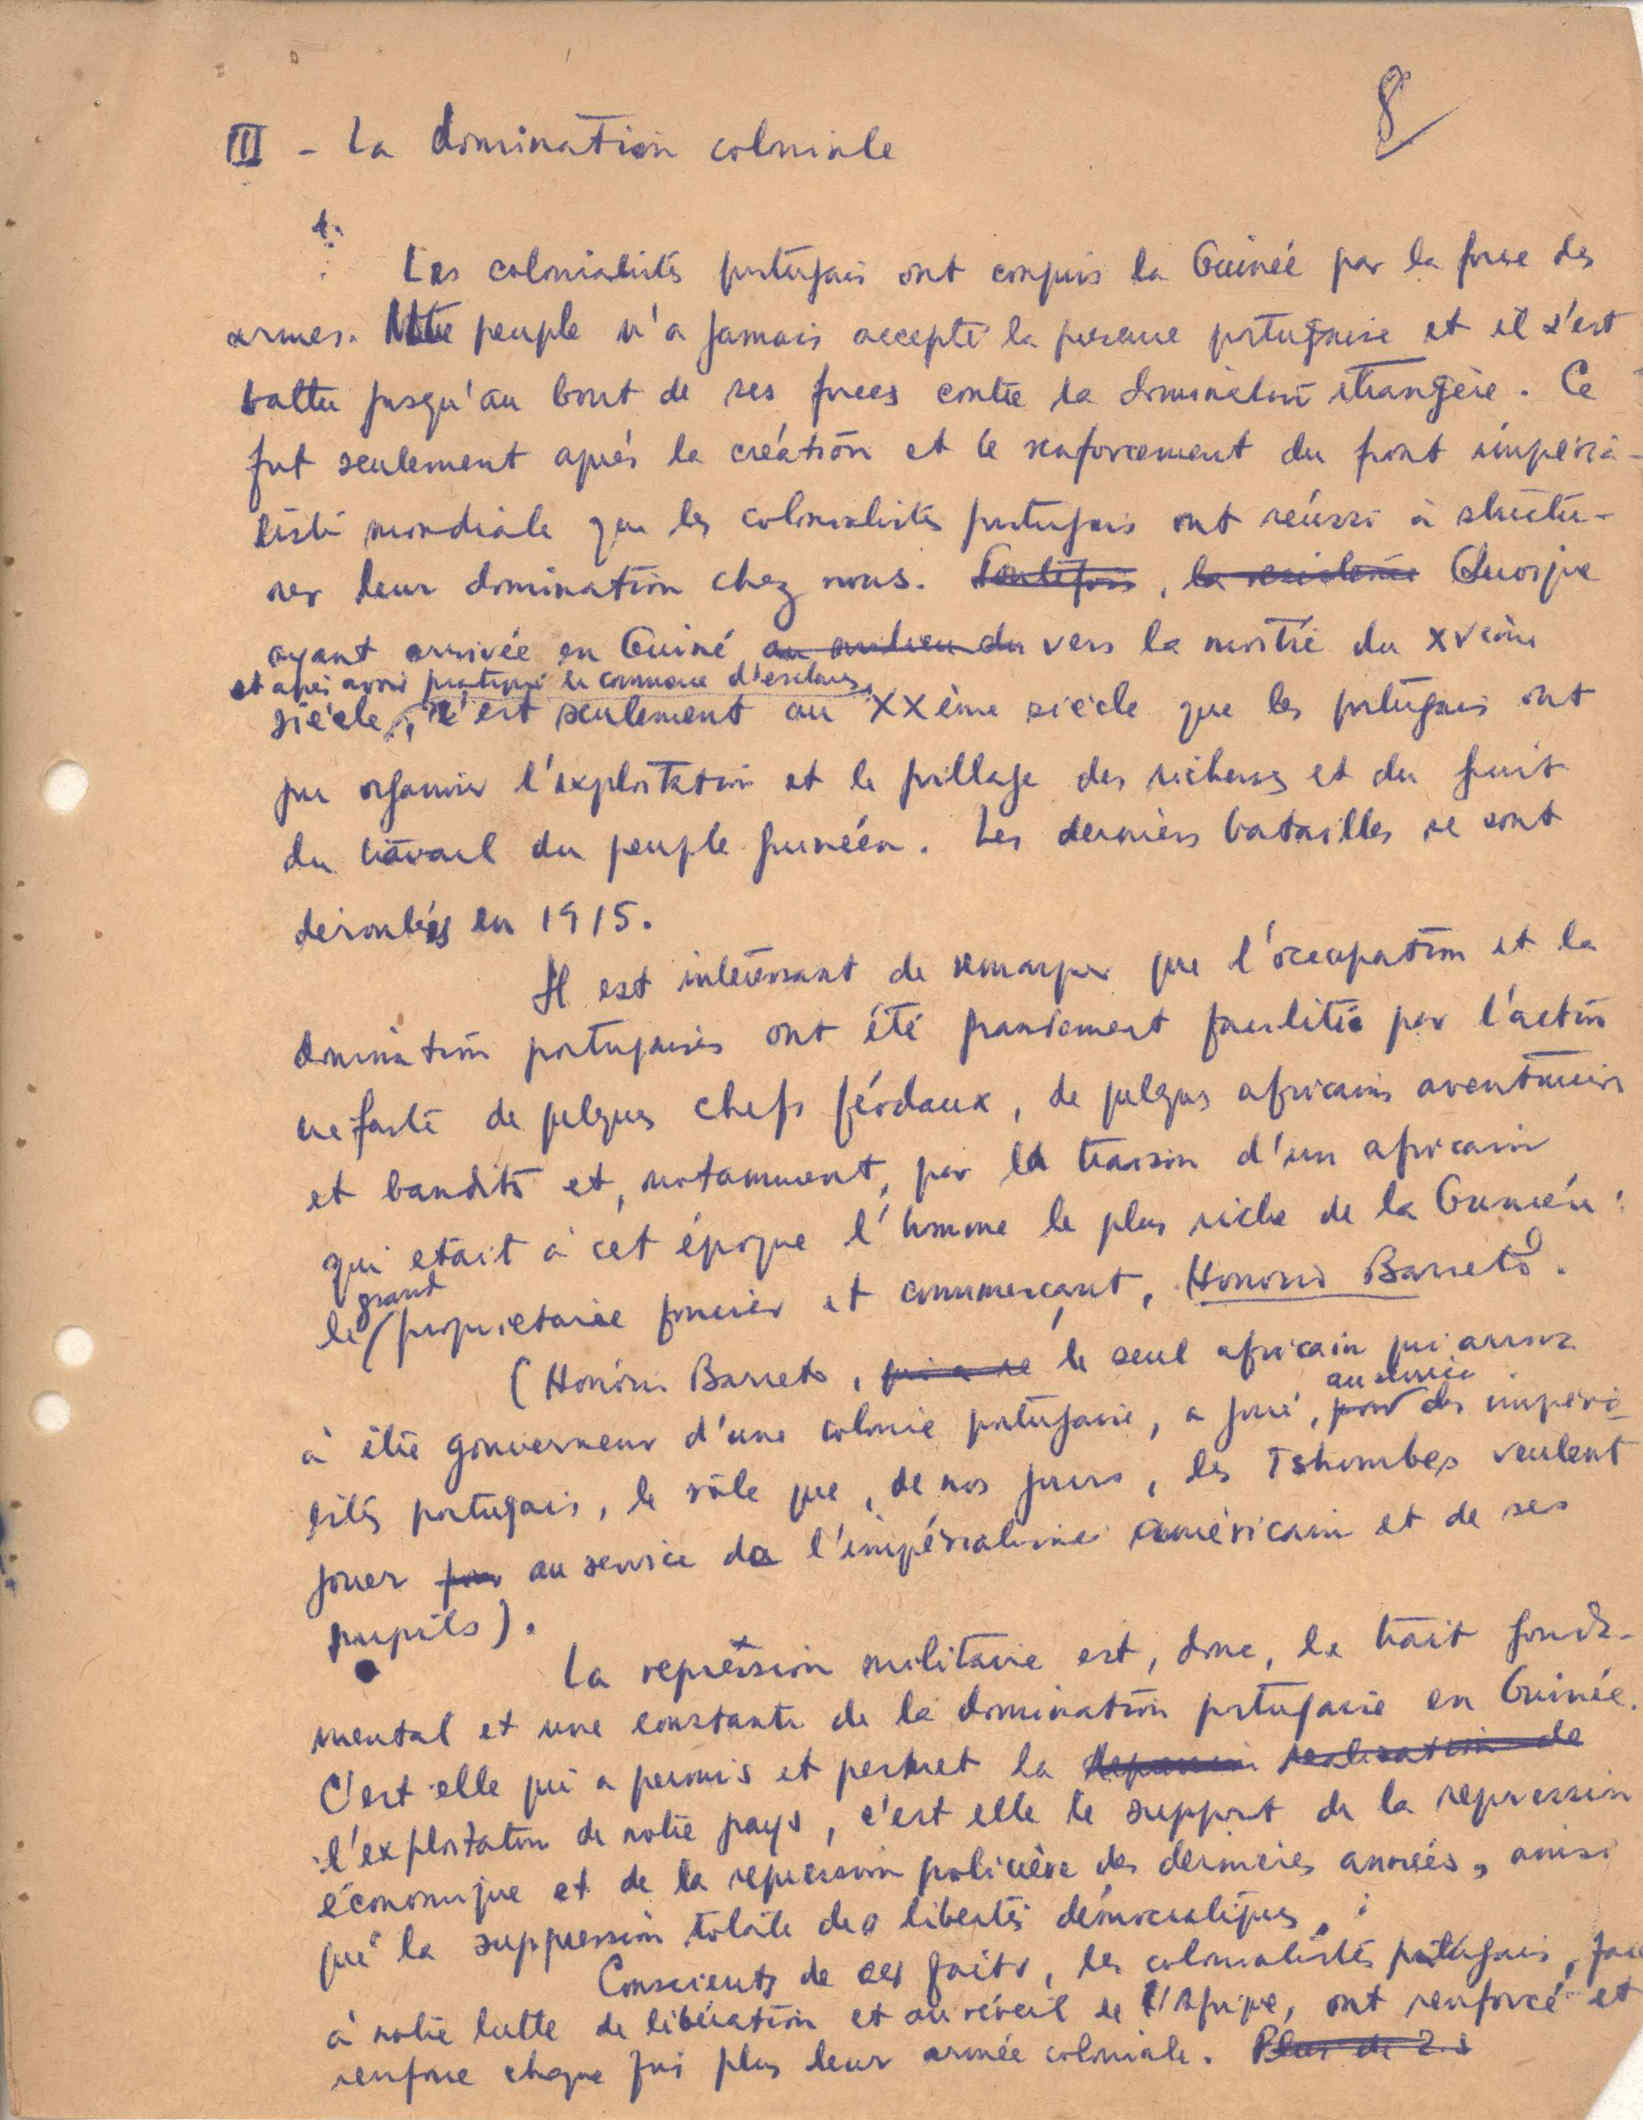 8
III - La domination coloniale
Les colonialistes portugais ont conquis la Guinée par la force des
armes. Notre peuple n'a jamais accepté la presence portugaise et il s'est
battu jusqu'au bout de ses forces contre la domination étrangère. Ce
fut seulement après la création et le renforcement du front impéria-
liste mondiale que les colonialistes portugais ont réussi à structu-
rer leur domination chez nous. Toutefois, la resistence Quoique
ayant arrivée en Guiné au milieu du vers la moitié du XVème
et après avoir pratiqué le commerce d'esclaves,
siècle, c'est seulement au XXème siècle que les portugais ont
pu organiser l'exploitation et le pillage des richesses et du fruit
du travail du peuple guinéen. Les derniers batailles se sont
déroulées en 1915.
Il est intéressant de remarquer que l'occupation et la
domination portugaises ont été grandement facilités par l'action
nefaste de quelques chefs féodaux, de quelques africains aventuriers
et bandits et, notamment, par la traison d'un africain
qui etait à cet époque l'homme le plus riche de la Guinée:
grand
le proprietaire foncier et commerçant, Honorio Barreto.
(Honório Barreto, qui a été le seul africain qui arriva
au service
à être gouverneur d'une colonie portugaise, a joué, pour des impéria-
listes portugais, le rôle que, de nos jours, les Tshombes veulent
jouer pour au service de l'impérialisme américain et de ses
pupils).
La repression militaire est, donc, le trait fonda-
mental et une constante de la domination portugaise en Guinée.
C'est elle qui a permis et permet la realisation de
l'exploitation de notre pays, c'est elle le support de la repression
économique et de la repression policière des dernières années, ainsi
que la suppression totale des libertés démocratiques.
Conscients de ces faits, les colonialistes portugais, face
à notre lutte de libération et au réveil de l'Afrique, ont renforcé et
renforce chaque foi plus leur armée coloniale. Plus de 2.